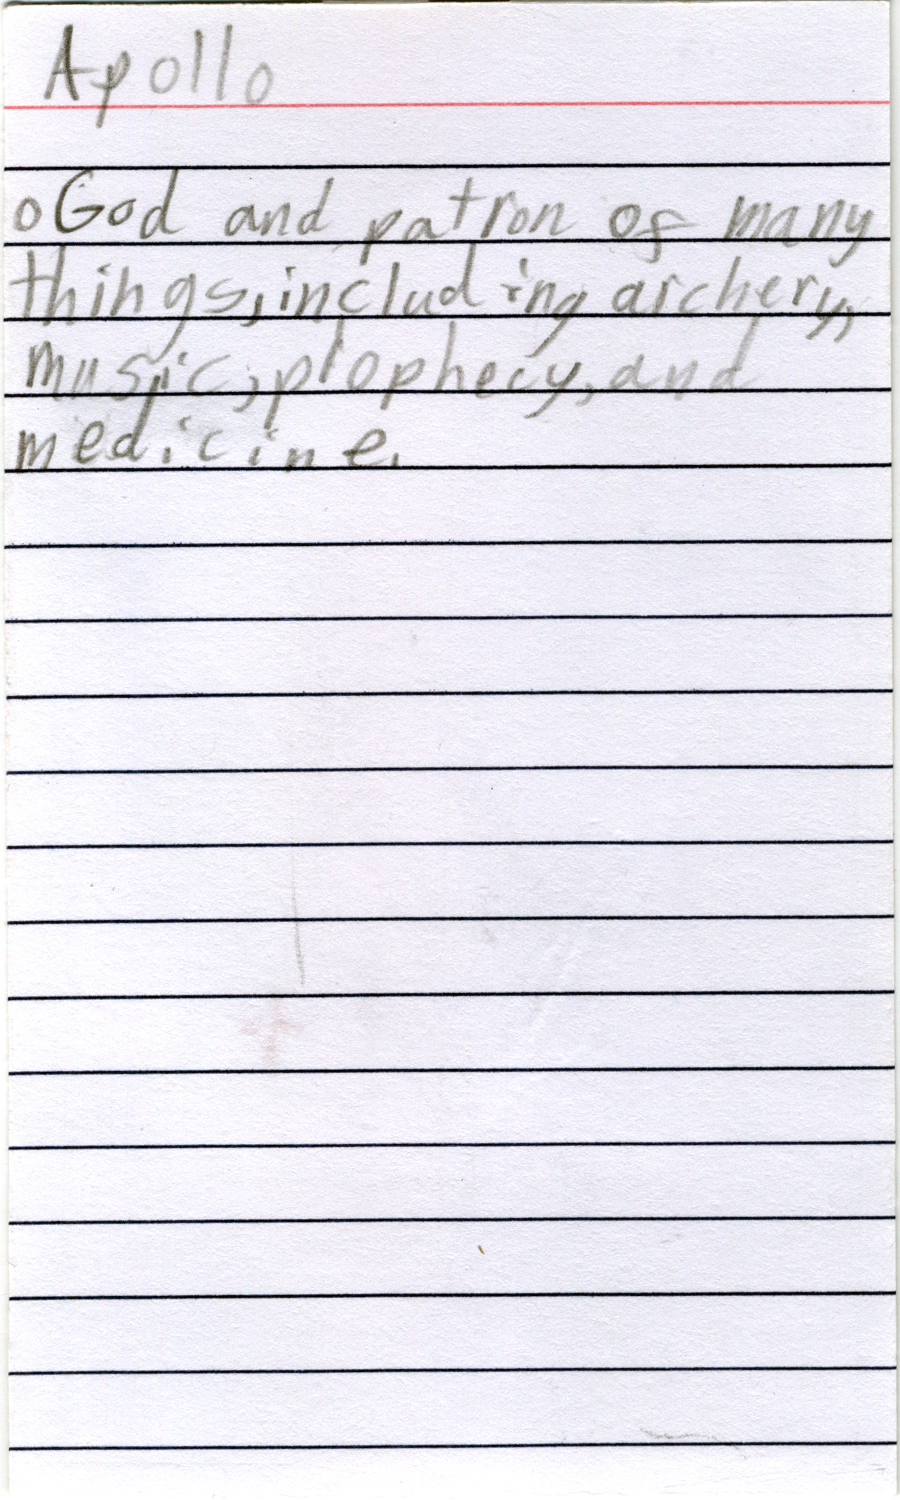 Apollo
o God and patron of many
things, including archery,
music, prophecy, and
medicine.